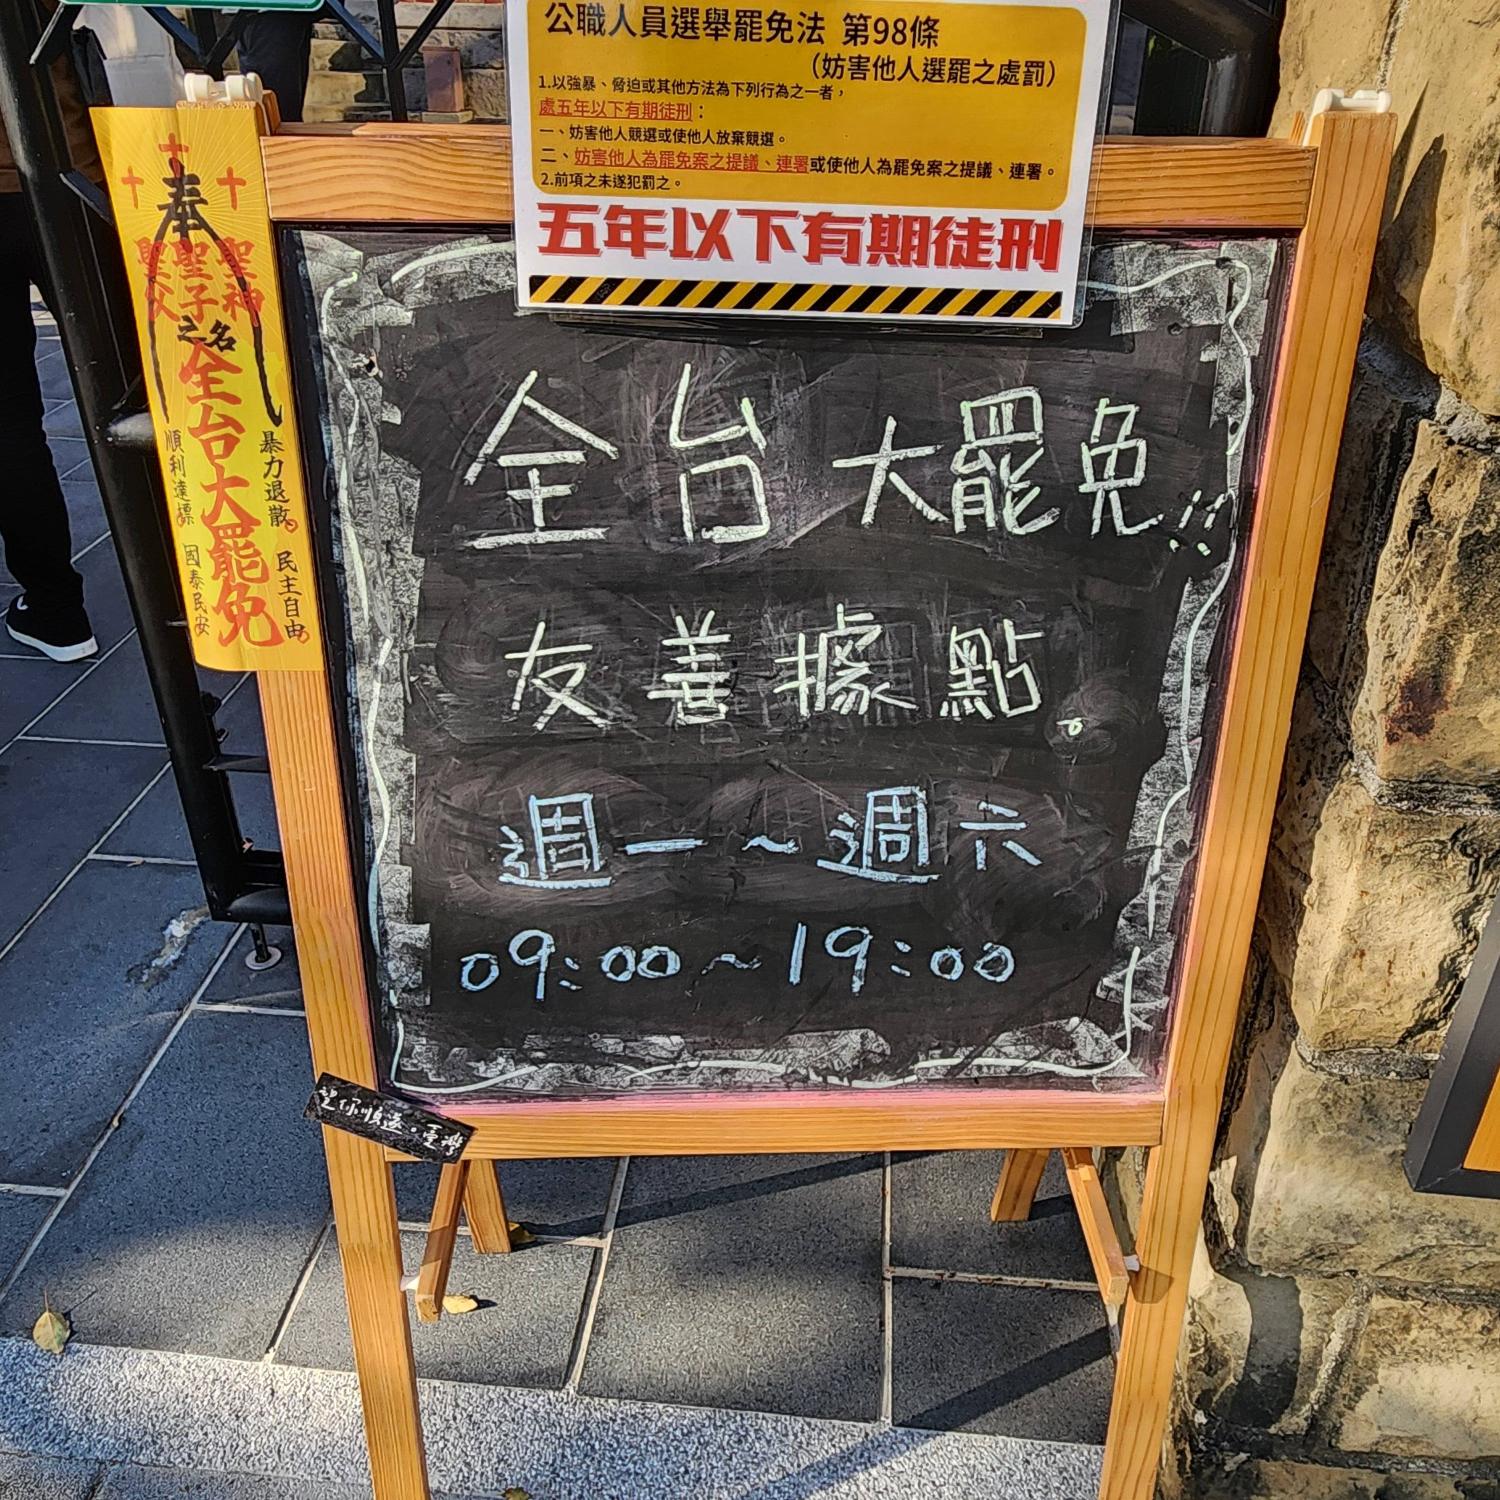 公職人員選舉罷免法 第98條
(妨害他人選罷之處罰)
1.以強暴、脅迫或其他方法為下列行為之一者，
處五年以下有期徒刑：
一、妨害他人競選或使他人放棄競選。
二、妨害他人為罷免案之提議、連署或使他人為罷免案之提議、連署。
2.前項之未遂犯罰之。
五年以下有期徒刑
奉
聖父聖子聖神
之名
全台大罷免
暴力退散
順利達標
民主自由
國泰民安
全台大罷免!!
友善據點。
週一～週六
09:00～19:00
望你順遂。臺灣